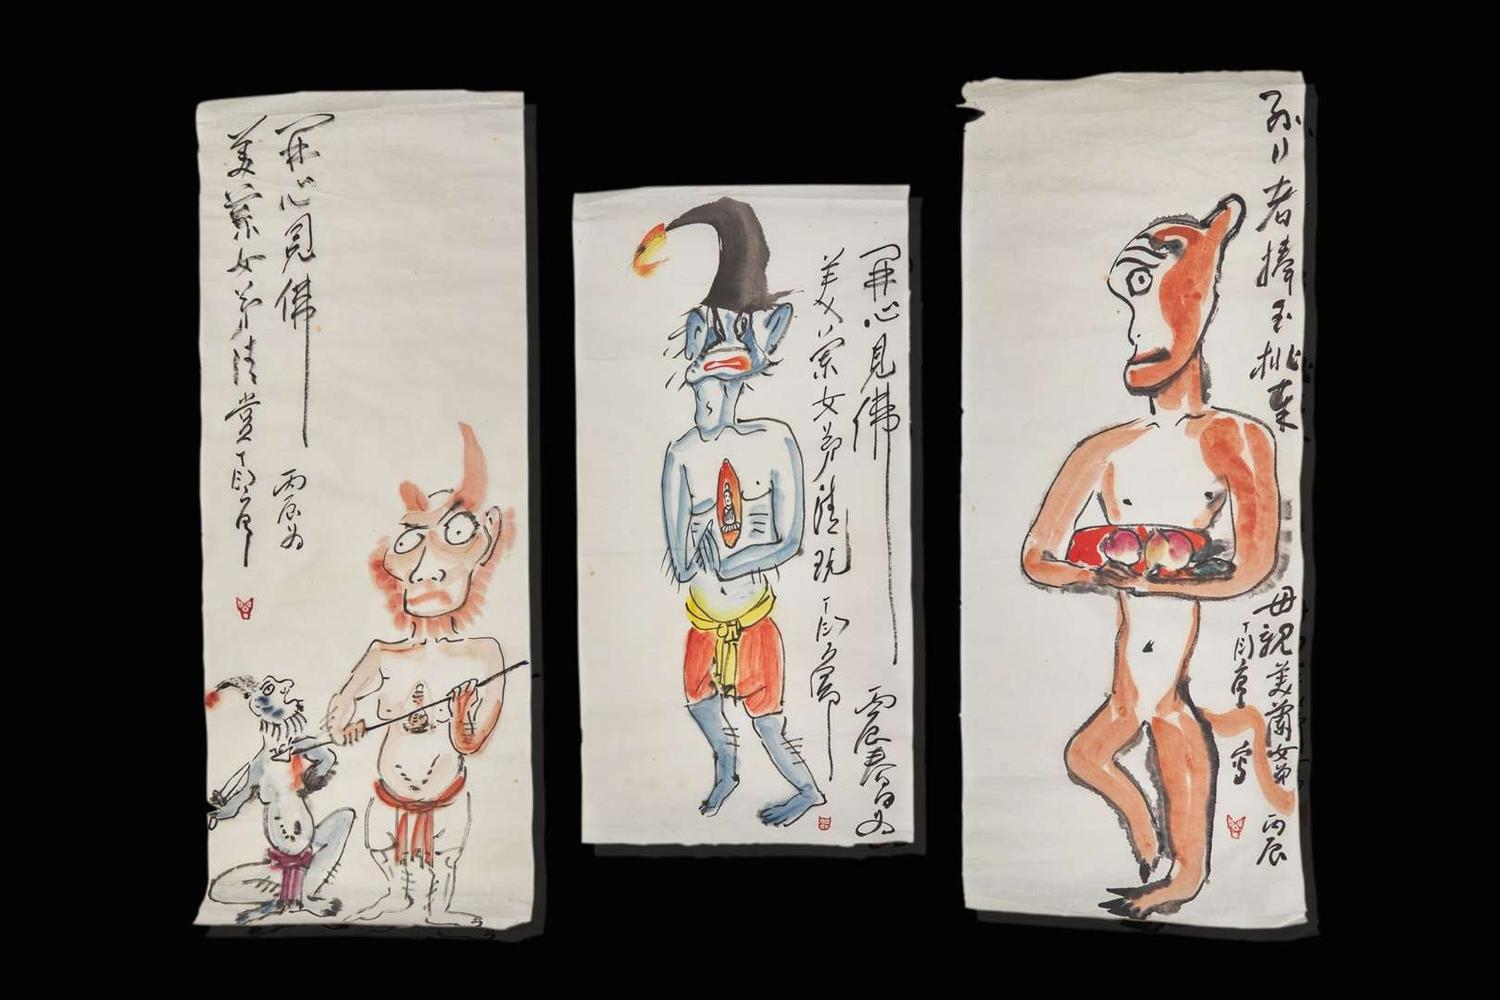 開心見佛 丙辰為
美蘭女弟清賞 丁衍庸
開心見佛 丙辰春日為
美蘭女弟清玩 丁衍庸
孫行者捧玉桃來
母親 美蘭女弟 丙辰
丁衍庸寫